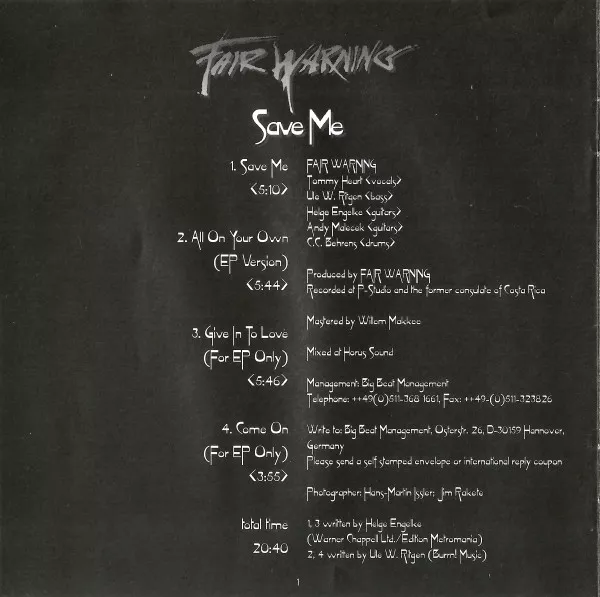 FAIR WARNING
Save Me
1. Save Me
<5:10>
2. All On Your Own
(EP Version)
<5:44>
3. Give In To Love
(For EP Only)
<5:46>
4. Come On
(For EP Only)
<3:55>
total time
20:40
FAIR WARNING
Tommy Heart <vocals>
Ule W. Ritgen <bass>
Helge Engelke <guitars>
Andy Malecek <guitars>
C.C. Behrens <drums>
Produced by FAIR WARNING
Recorded at P-Studio and the former consulate of Costa Rica
Mastered by Willem Makkee
Mixed at Horus Sound
Management: Big Beat Management
Telephone: ++49(0)511-368 1661, Fax: ++49-(0)511-323826
Write to: Big Beat Management, Osterstr. 26, D-30159 Hannover,
Germany
Please send a self stamped envelope or international reply coupon
Photographer: Hans-Martin Issler; Jim Rakete
1, 3 written by Helge Engelke
(Warner Chappell Ltd./Edition Metromania)
2, 4 written by Ule W. Ritgen (Burrn! Music)
1